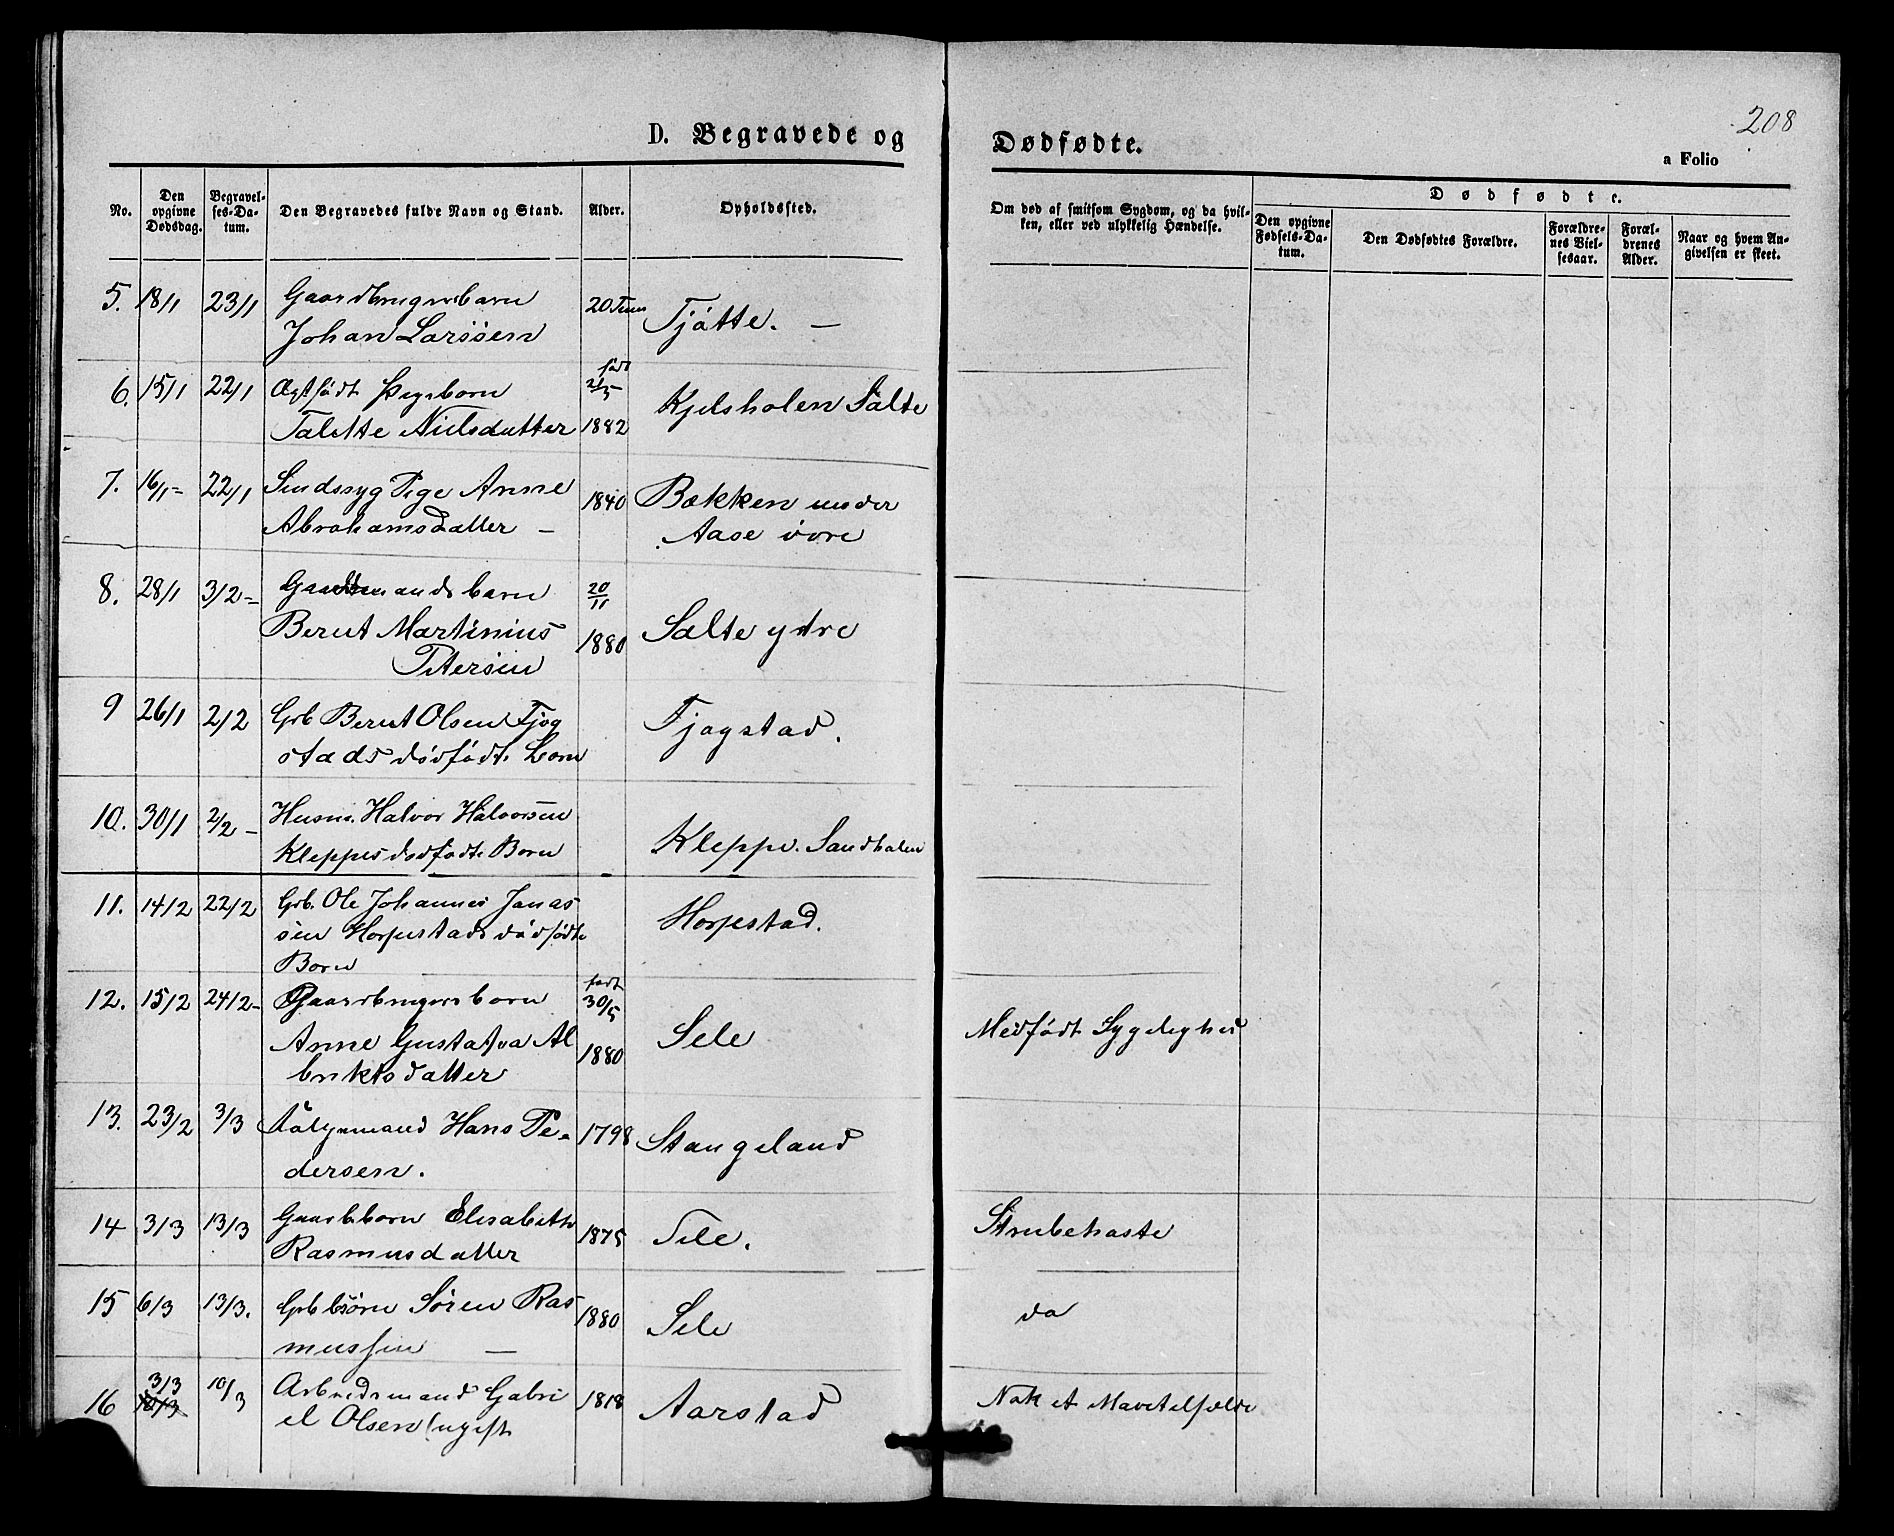 208
D. Begravede og Dødfødte.
a Folio
No.
Den opgivne Dødsdag.
Begravelses-Datum.
Den Begravedes fulde Navn og Stand.
Alder.
Opholdssted.
Om død af smitsom Sygdom, og da hvilken, eller ved ulykkelig Hændelse.
Dødfødte.
Den opgivne Fødsels-Datum.
Den Dødfødtes Forældre.
Forældrenes Vielsesaar.
Forældrenes Alder.
Naar og hvem Angivelsen er skeet.
5. 18/1 23/1 Gaardbrugersbarn 20 Timer Tjøtte. —
Johan Larssen
6. 15/1 22/1 Ægtfødt Pigebarn født 2/5 1882 Kjelsholen Salte
Talette Nielsdatter
7. 16/1 22/1 Sindssyg Pige Anne 1840 Bækken under
Abrahamsdatter — Aase øvre
8. 28/1 3/2 Gaardmandsbarn 20/11 1880 Salte ydre
Berut Martinius
Petersen
9 26/1 2/2 Grb Berut Olsen Tjog Tjogstad.
stads dødfødte Barn
10. 30/1 2/2 Husm. Halvor Halvorsen Kleppe. Sandhalen
Kleppes dødfødte Barn
11. 14/2 22/2 Grb. Ole Johannes Jonas Horpestad.
sen Horpestads dødfødte
Barn
12. 15/2 24/2 Gaardbrugersbarn født 30/5 1880 Sele Medfødt Sygelighed
Anne Gustava Al
briktsdatter
13. 23/2 3/3 Hans Pe- 1798 Stangeland
dersen.
14 3/3 13/3 Gaardbbarn Elisabeth 1875 Sele. Strubehoste
Rasmusdatter
15 6/3 13/3. Grb børn Søren Ras 1880 Sele do
mussen —
16 3/3 10/3 Arbeidsmand Gabri 1818 Aarstad Nok et Mavetilfælde
el Olsen (ugift